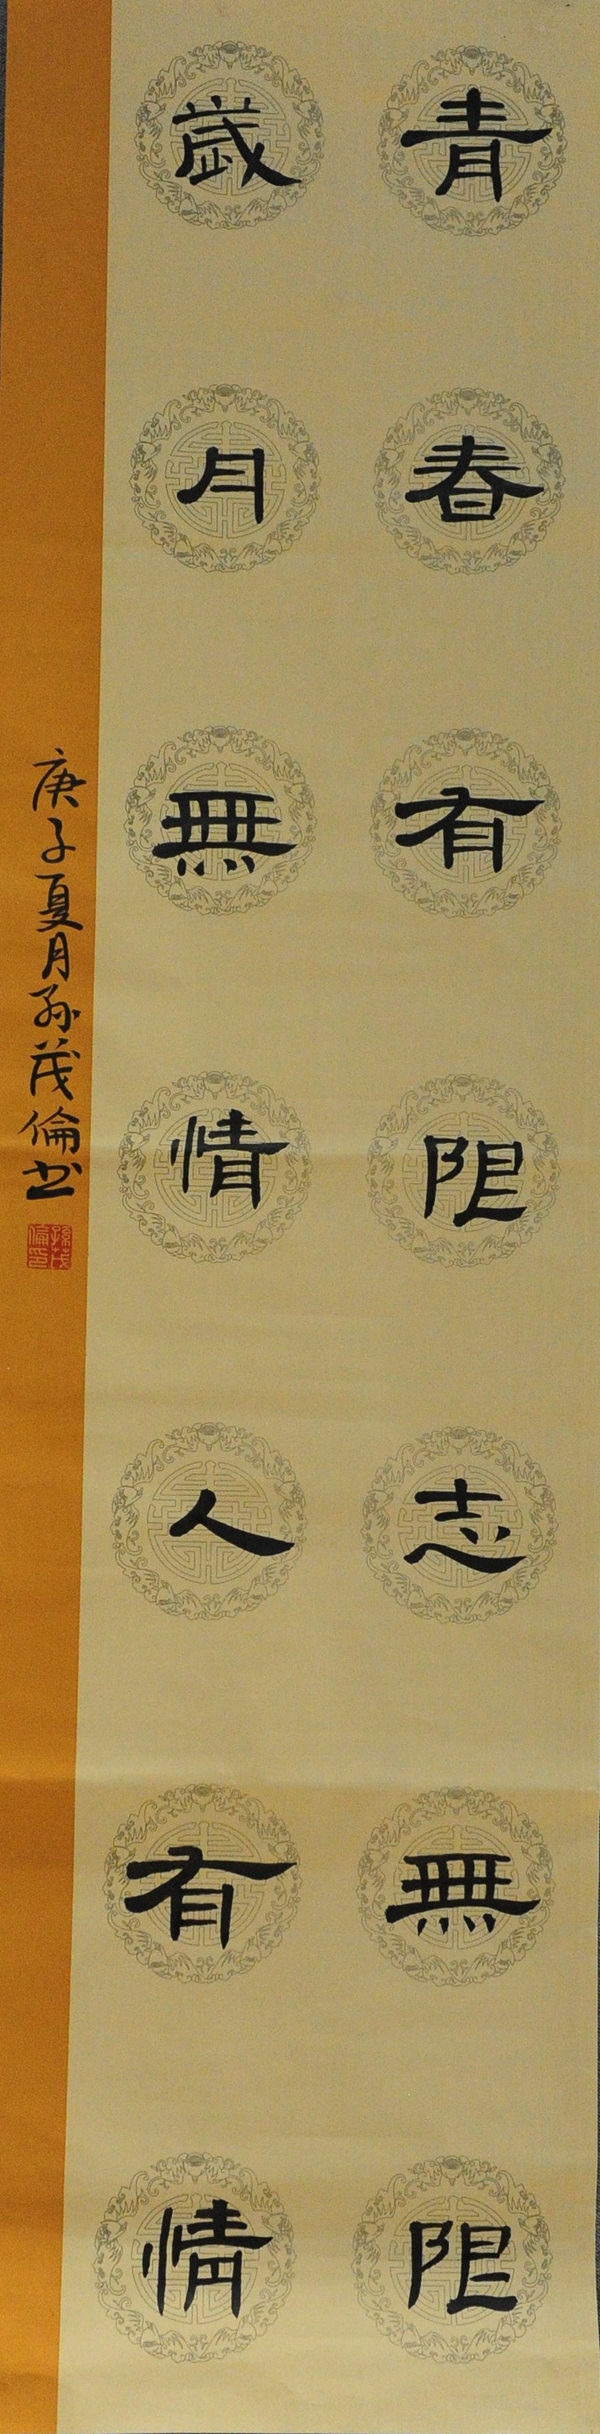 青春有限志無限
歲月無情人有情
庚子夏月孫茂倫书
孫茂倫印